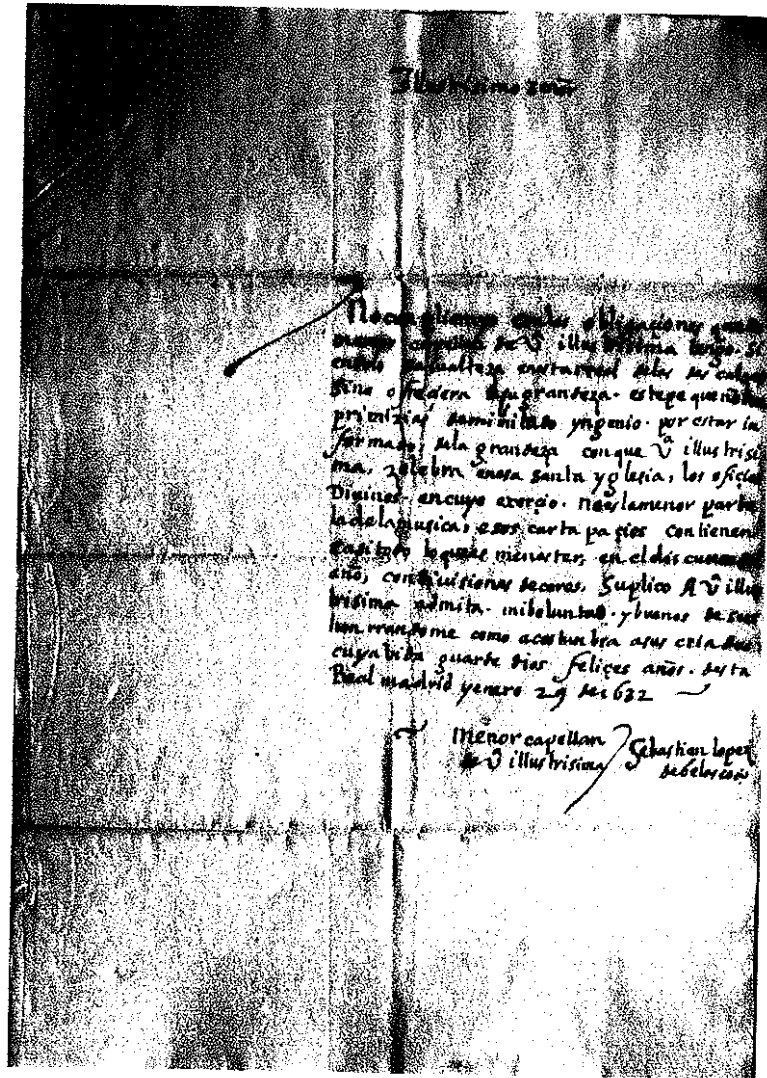 Illustrisimo señor
No cunpliera con las obligaciones que
capellan de V illustrisima tengo. si
su alteza
sino ofreciera a su grandeza. este pequeño
primizias ingenio. por estar in
formado de la grandeza con que Vª illustrisi
ma, zelebra en esa santa yglesia, los ofiçios
Divinos. en cuyo exerçio. no es la menor parte
la de la musica, esos cartapaçios contienen
casi todo lo que es menester, en el discurso del
año, conprovisiones decoras. Suplico A Vª illus
trisima admita. mi boluntad. y buenos deseos
honrrandome como acostunbra a sus criados
cuya vida guarde dios feliçes años. desta
Real madrid y enero 29 de 1632
Menor capellan
de Vª illustrisima
Sebastian lopez
de belasco